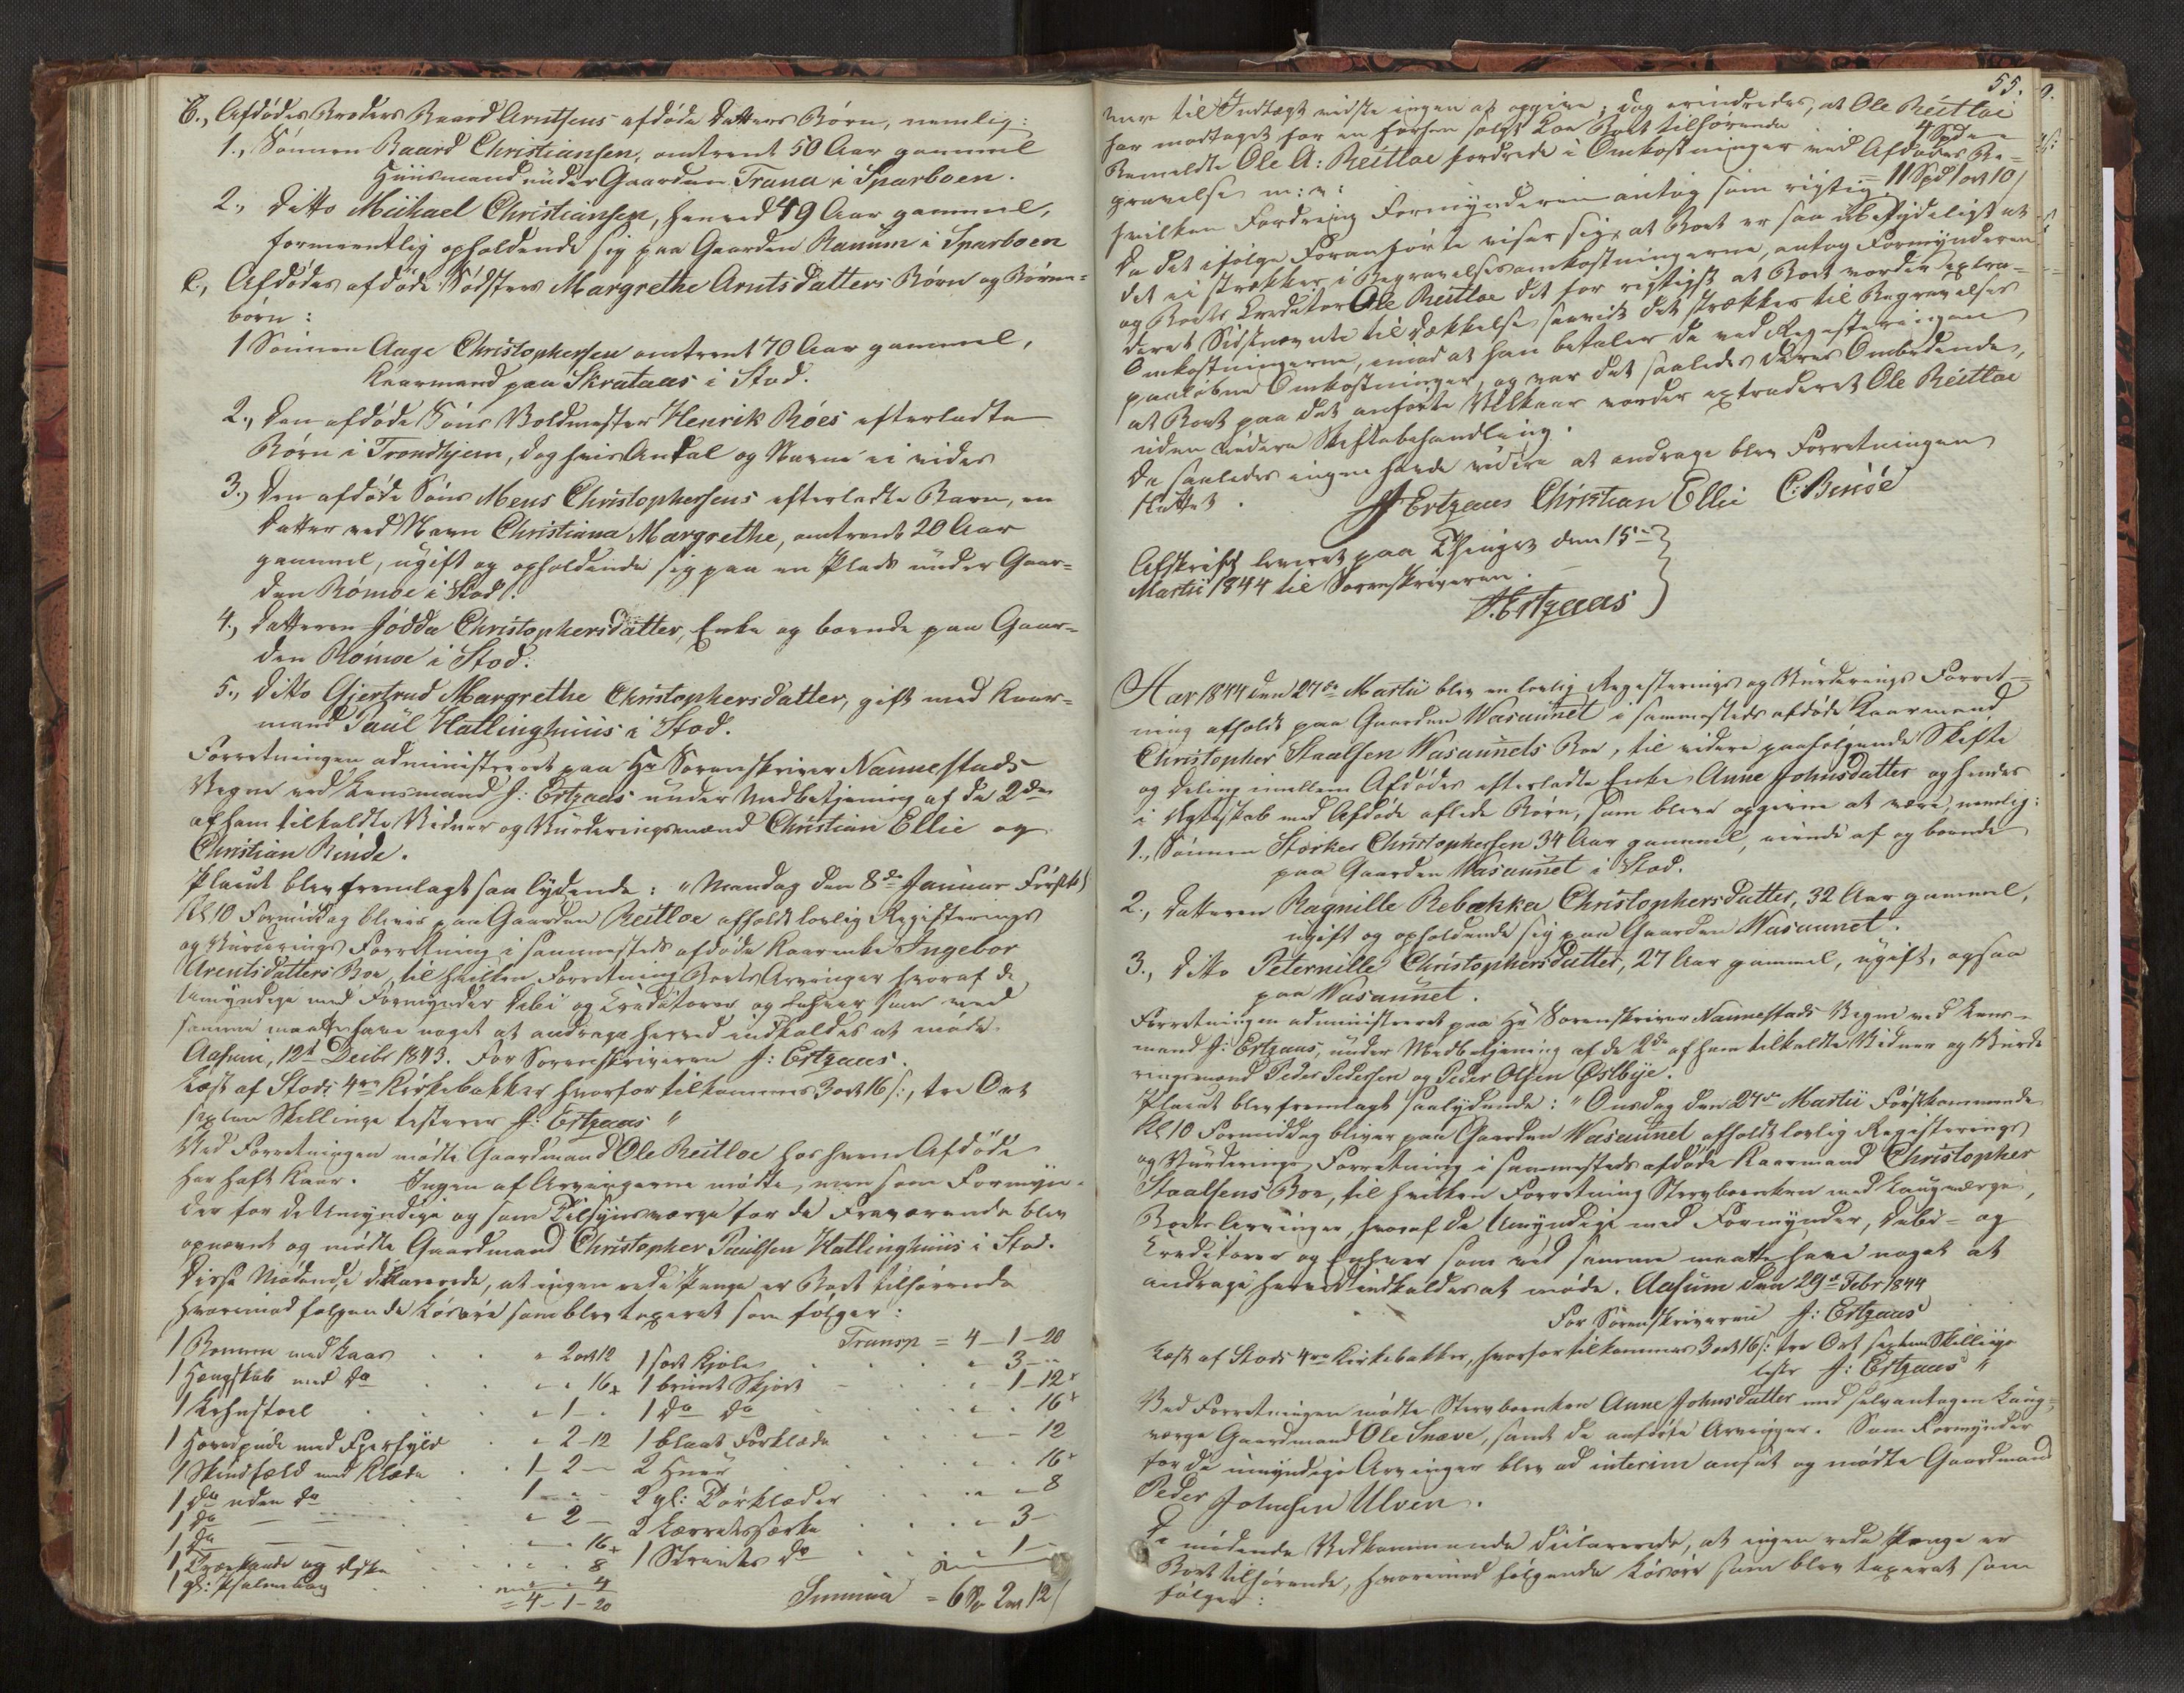 B., Afdødes Broders Baard Arntsens afdøde Datters Børn, nemlig:
1., Sønnen Baard Christiansen, omtrent 50 Aar gammel
Huusmand under Gaarden Trana i Sparboen.
2., Ditto Mikael Christiansen, henved 49 Aar gammel,
formeentlig opholdende sig paa Gaarden Ranum i Sparboen
C., Afdødes afdøde Södsters Margrethe Arntsdatters Börn og Börne-
börn:
1 Sönnen Aage Christophersen omtrent 70 Aar gammel,
Kaarmand paa Skrataas i Stod.
2., Den afdøde Söns Voldmester Henrik Röes efterladte
Börn i Trondhjem, dog hvis Antal og Navne ei vides
3., Den afdøde Söns Mens Christophersens efterladte Barn, en
Datter ved Navn Christiana Margrethe, omtrent 20 Aar
gammel, ugift og opholdende sig paa en Plads under Gaar-
den Römoe i Stod.
4., Datteren Jödda Christophersdatter, Enke og boende paa Gaar-
den Römoe i Stod.
5., Ditto Gjertrud Margrethe Christophersdatter, gift med Kaar-
mand Paul Hatlinghuus i Stod.
Forretningen administreret paa Hr Sorenskriver Nannestads
Vegne ved Lensmand J: Ertzaas under Medbetjening af de 2de
af ham tilkaldte Vidner og Vurderingsmænd Christian Ellie og
Christian Binde.
Placat blev fremlagt saa lydende: "Mandag den 8de Januar Förstk:
Kl 10 Formiddag bliver paa Gaarden Reitloe afholdt lovlig Registerings
og Vurderings Forretning i sammesteds afdøde Kaarenke Ingebor
Arentsdatters Boe, til hvilken Forretning Boets Arvinger hvoraf de
Umyndige med Formynder Debi og Creditorer og Enhver som ved
samme maatte have noget at andrage herved indkaldes at møde.
Aasum, 12t Decbr 1843. For Sorenskriveren J: Ertzaas.
Læst af Stods 4re Kirkebakker hvorfor tilkommer 3 ort 16 s:, tre Ort
sexten Skillinge testerer J: Ertzaas"
Ved Forretningen mödte Gaardmand Ole Reitloe hos hvem Afdöde
har haft Kaar. Ingen af Arvingerne mödte, men som Formyn-
der for de Umyndige og som Tilsynsværge for de Fraværende blev
opnævnt og mödte Gaardmand Christopher Paulsen Hatlinghuus i Stod.
Disse Mödende deklarerede, at ingen rede Penge er Boet tilhörende
hvorimod fölgende Lösöre som blev taxeret som fölger:
1 Bommen med Laas " 2 ort 12
1 Hængskab med Do " " 16
1 Lehnstoel " 1 "
1 Hovedpude med Fjerfyld " 2-12
1 Skindfeld med Klæde 1-2-
1 do uden do 1 " "
1 do " 2 -
1 do " " 16
1 Trækande og Æske " " 8
1 gl: Psalmebog " " 4
= 4-1-20
Transp = 4-1-20
1 sort Kjole " 3 -
1 bruunt Skjört " 1-12
1 do do " " 16
1 blaat Forklæde " - 12
2 Huer " " 16
2 gl: Törklæder " " 8
2 Lærretssærke " 3 -
1 Strie do " 1 -
Summa = 6 Sp 2 ort 12 s
55.
mere til Indtægt vidste ingen at opgive; dog erindredes, at Ole Reitloe
har modtaget for en forhen solgt Koe Boet tilhørende 4 Spd " "
Bemeldte Ole A: Reitloe fordrede i Omkostninger ved Afdødes Be-
gravelse m: v: 11 Spd 1 ort 10 s
hvilken Fordring Formynderen antog som rigtig
Da det ifölge Foranførte viser sig, at Boet er saa ubetydeligt at
det ei strækker i Begravelsesomkostningerne, antog Formynderen
og Boets Creditor Ole Reitloe det for rigtigst at Boet vorder extra-
deret Sidstnævnte til Dækkelse saavidt det strækker til Begravelses
Omkostningerne, imod at han betaler de ved Registeringen
paaløbne Omkostninger, og var det saaledes Deres Ombedende,
at Boet paa det anførte Vilkaar vorder extraderet Ole Reitloe
uden videre Skiftebehandling.
Da saaledes ingen havde videre at andrage blev Forretningen
sluttet.
J Ertzaas Christian Ellie C: Binde
Afskrift leveret paa Thinget den 15de
Martii 1844 til Sorenskriveren.
J. Ertzaas
Aar 1844 den 27de Martii blev en lovlig Registerings og Vurderings Forret-
ning afholdt paa Gaarden Wasaunet i sammesteds afdøde Kaarmand
Christopher Staalsen Wasaunets Boe, til videre paafølgende Skifte
og Deling imellem Afdødes efterladte Enke Anne Johnsdatter og hendes
i Ægteskab med Afdøde aflede Børn, som blev opgivne at være, nemlig:
1., Sønnen Storker Christophersen 34 Aar gammel, eiende af og boende
paa Gaarden Wasaunet i Stod.
2., Datteren Ragnille Rebekka Christophersdatter, 32 Aar gammel,
ugift og opholdende sig paa Gaarden Wasaunet.
3., Ditto Peternille Christophersdatter, 27 Aar gammel, ugift, ogsaa
paa Wasaunet.
Forretningen administreret paa Hr Sorenskriver Nannestads Vegne ved Lens-
mand J: Ertzaas, under Medbetjening af de 2de af ham tilkaldte Vidner og Vurde
ringsmænd Peder Pedersen og Peder Olsen Østbye.
Placat blev fremlagt saalydende: "Onsdag den 27de Martii Förstkommende
Kl 10 Formiddag bliver paa Gaarden Wasaunet afholdt lovlig Registerings
og Vurderings Forretning i sammesteds afdøde Kaarmand Christopher
Staalsens Boe, til hvilken Forretning Stervboenken med Laugværge,
Boets Arvinger, hvoraf de Umyndige med Formynder, Debi- og
Creditorer og Enhver som ved samme maatte have noget at
andrage herved indkaldes at møde. Aasum den 29de Febr 1844
For Sorenskriveren J: Ertzaas
Læst af Stods 4re Kirkebakker, hvorfor tilkommer 3 ort 16 s: tre Ort sexten Skillinge
tester J: Ertzaas"
Ved Forretningen mødte Stervboenken Anne Johnsdatter med selvantagen Laug-
værge Gaardmand Ole Snæve, samt de anførte Arvinger. Som Formynder
for de umyndige Arvinger blev ad interim ansat og mødte Gaardmand
Peder Johnsen Ulven.
De mødende Vedkommende declarerede, at ingen rede Penge er
Boet tilhørende, hvorimod følgende Løsøre som blev taxeret som
følger: